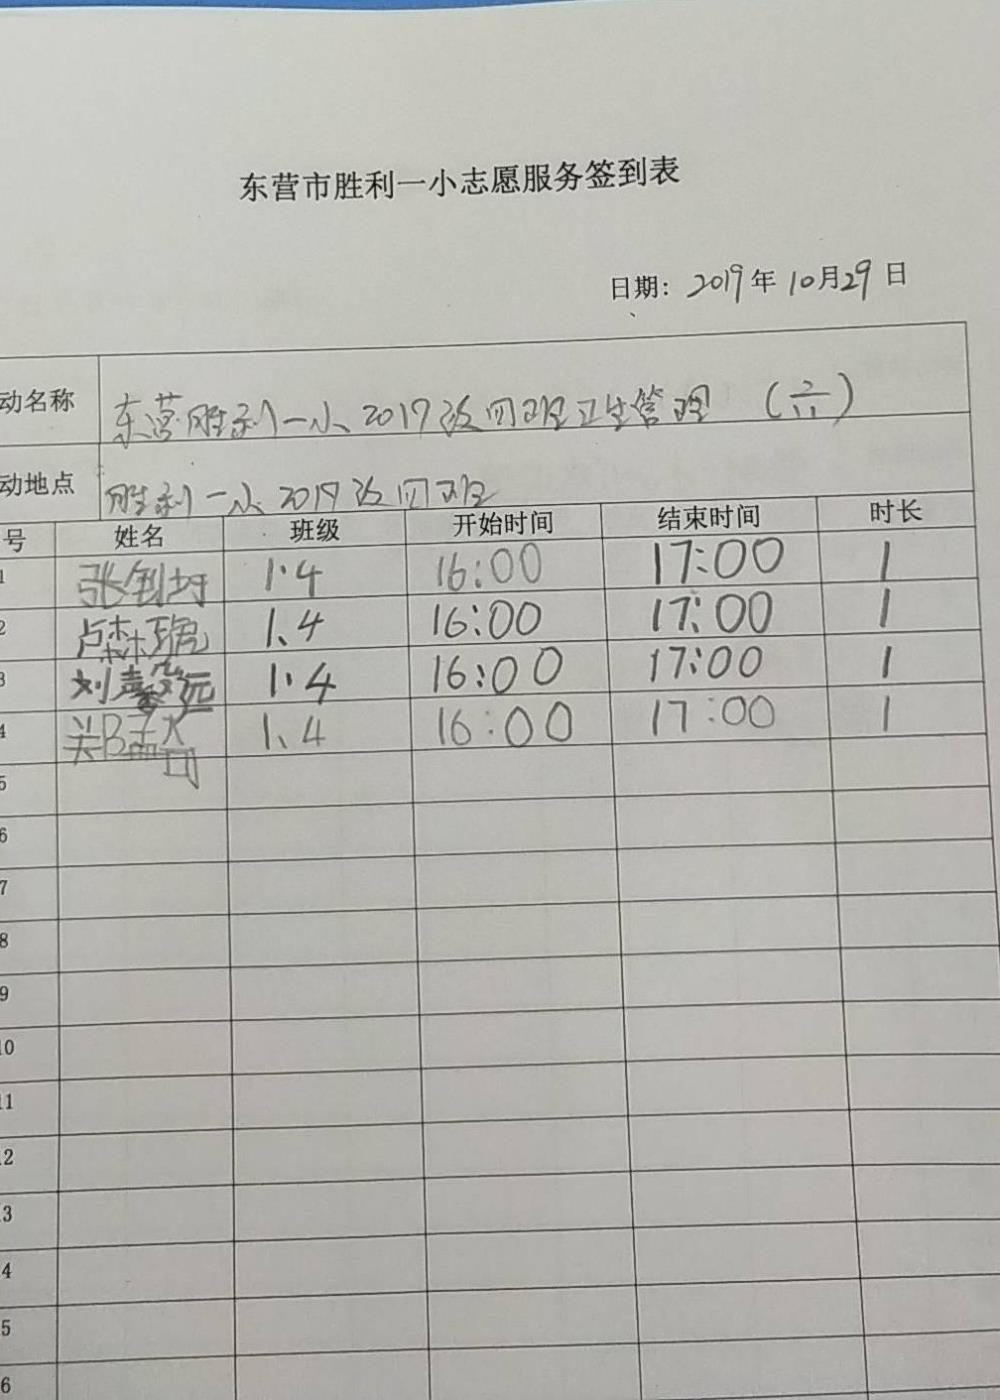 东营市胜利一小志愿服务签到表
日期: 2019年10月29日
动名称 东营胜利一小2017级四班卫生管理 (六)
动地点 胜利一小2017级四班
号 姓名 班级 开始时间 结束时间 时长
1 张 1.4 16:00 17:00 1
2 卢森琥 1、4 16:00 17:00 1
3 刘馨远 1.4 16:00 17:00 1
4 1、4 16:00 17:00 1
5
6
7
8
9
10
11
12
13
14
15
16